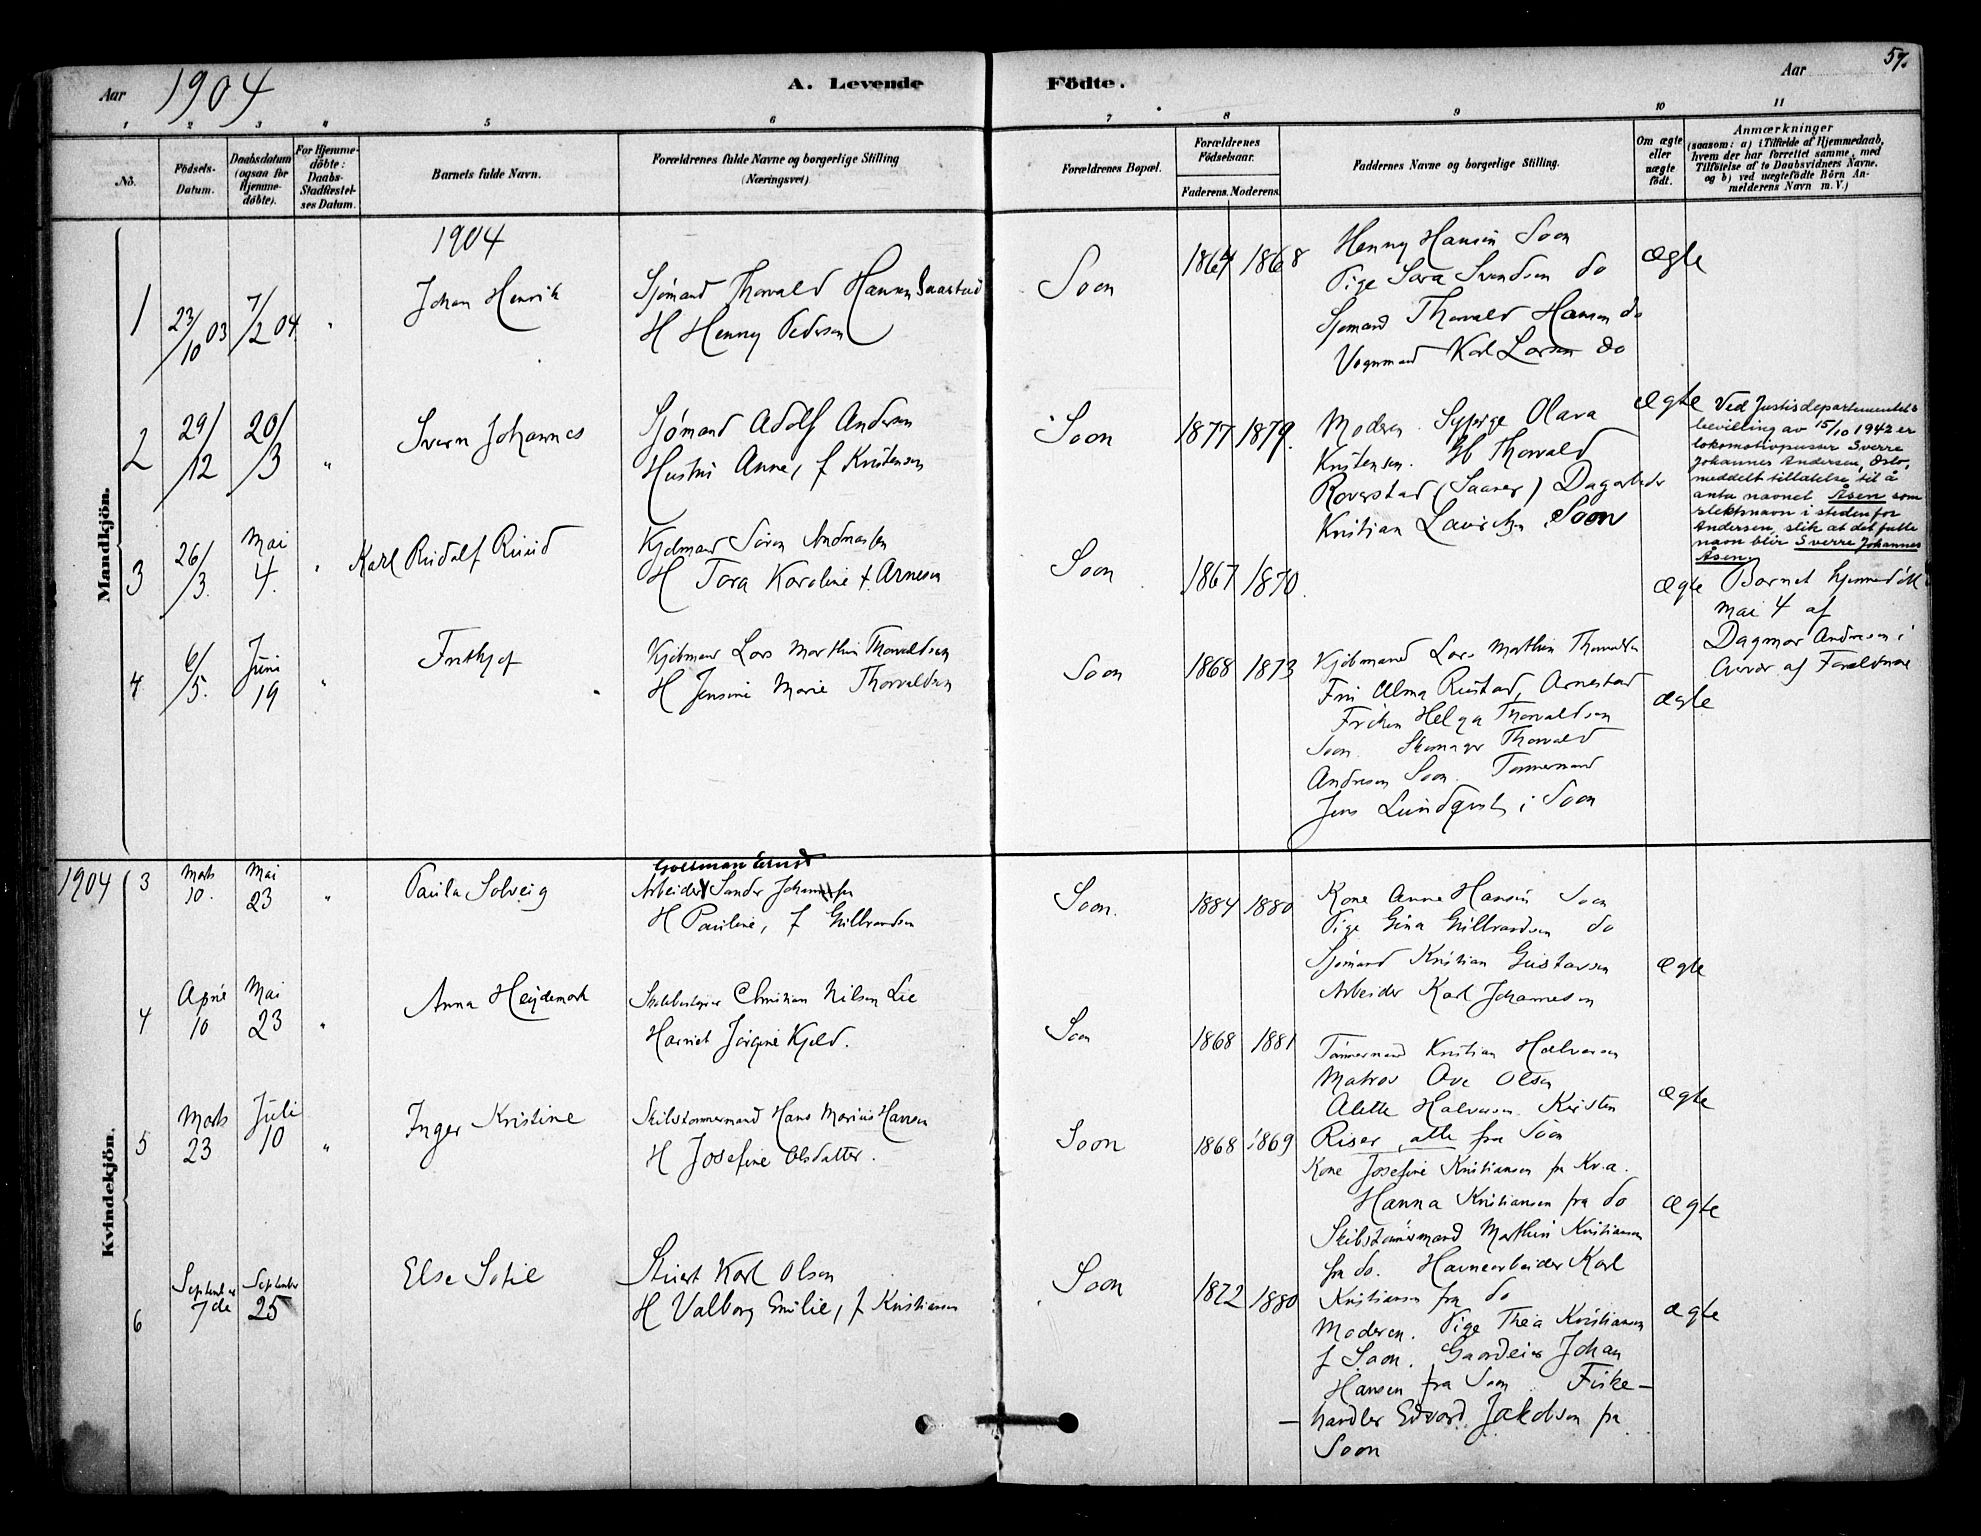 Aar 1904 A. Levende Födte. Aar 57.
1 2 3 4 5 6 7 8 9 10 11
No.
Födsels-Datum.
Daabsdatum (ogsaa for Hjemme-döbte).
For Hjemme-döbte: Daabs-Stadfæstel-ses Datum.
Barnets fulde Navn.
Forældrenes fulde Navne og borgerlige Stilling
(Næringsvei)
Forældrenes Bopæl.
Forældrenes Födselsaar.
Faderens. Moderens.
Faddernes Navne og borgerlige Stilling.
Om ægte eller uægte födt.
Anmærkninger
(saasom: a) i Tilfælde af Hjemmedaab,
hvem der har forrettet samme, med
Tilföielse af to Daabsvidners Navne.
og b) ved uægtefödte Börn An-
melderens Navn m. V.)
Mandkjön.
1904
1 23/10 03 7/2 04 " Johan Henrik
Sjømand Thorvald Hansen Saastad
H Henny Pedersen
Soon 1864 1868
Henny Hansen Soon
Pige Sara Svendsen do
Sjømand Thorvald Hansen do
Vognmand Karl Larsen do
ægte
2 29/12 20/3 " Sverre Johannes
Sjømand Adolf Andersen
Hustru Anne, f Kristensen
Soon 1877 1879.
Moderen. Olava
Kristensen. Thorvald
(Saaner) Dagarbeider
Kristian Soon
ægte
Ved Justisdepartementets
bevilling av 15/10 1942 er
lokomotivpusser Sverre
Johannes Andersen, Oslo,
meddelt tillatelse til å
anta navnet Åsen som
slektsnavn i steden for
Andersen, slik at det fulle
navn blir Sverre Johannes
Åsen
3 26/3. Mai 4. " Karl Rudolf Ruud
Kjøbmand Søren Andreassen
H Tora Karoline f. Arnesen
Soon 1867 1870.
ægte
Barnet hjemmedøbt
Mai 4 af
Dagmar Andresen i
Nærvær af Forældrene
4 6/5. Juni 19 " Frithjof
Kjøbmand Lars Marthin Thorvaldsen
H Jensine Marie Thorvaldsen
Soon 1868 1873
Kjøbmand Lars Marthin Thorvaldsen
Fru Alma Rustad, Arnestad
Frøken Helga Thorvaldsen
Soon. Skomager Thorvald
Andresen Soon. Tømmermand
Jens Lundqvist i Soon
ægte
Kvindekjön.
1904 3 Marts 10. Mai 23 " Paula Solveig
Gollman Ernst
Arbeider Sander Johannesen
H Pauline, f Gulbrandsen
Soon. 1884 1880
Kone Anne Hansen Soon
Pige Gina Gulbrandsen do
Sjømand Kristian Gustavsen
Arbeider Karl Johannesen
ægte
4 April 10 Mai 23 " Anna Heydemark
Skibsbestyrer Christian Nilsen Lie
Harriet Jørgine Kjeld.
Soon 1868 1881
Tømmermand Kristian Halvorsen
Matros Ove Olsen
Alette Halvorsen. Kirsten
Riser, alle fra Soon
ægte
5 Marts 23 Juli 10 " Inger Kristine
Skibstømmermand Hans Marius Hansen
H Josefine Olsdatter.
Soon 1868 1869
Kone Josefine Kristiansen fra Kr.a.
Hanna Kristiansen fra do
Skibstømmermand Marthin Kristiansen
fra do. Havnearbeider Karl
Kristiansen fra do
ægte
6 September 7de September 25 Else Sofie
Stuert Karl Olsen
H Valborg Emilie, f Kristiansen
Soon 1872 1880
Moderen. Pige Thea Kristiansen
f Soon. Gaardeier Johan
Hansen fra Soon. Fiske-
handler Edvard Jakobsen fra
Soon
ægte